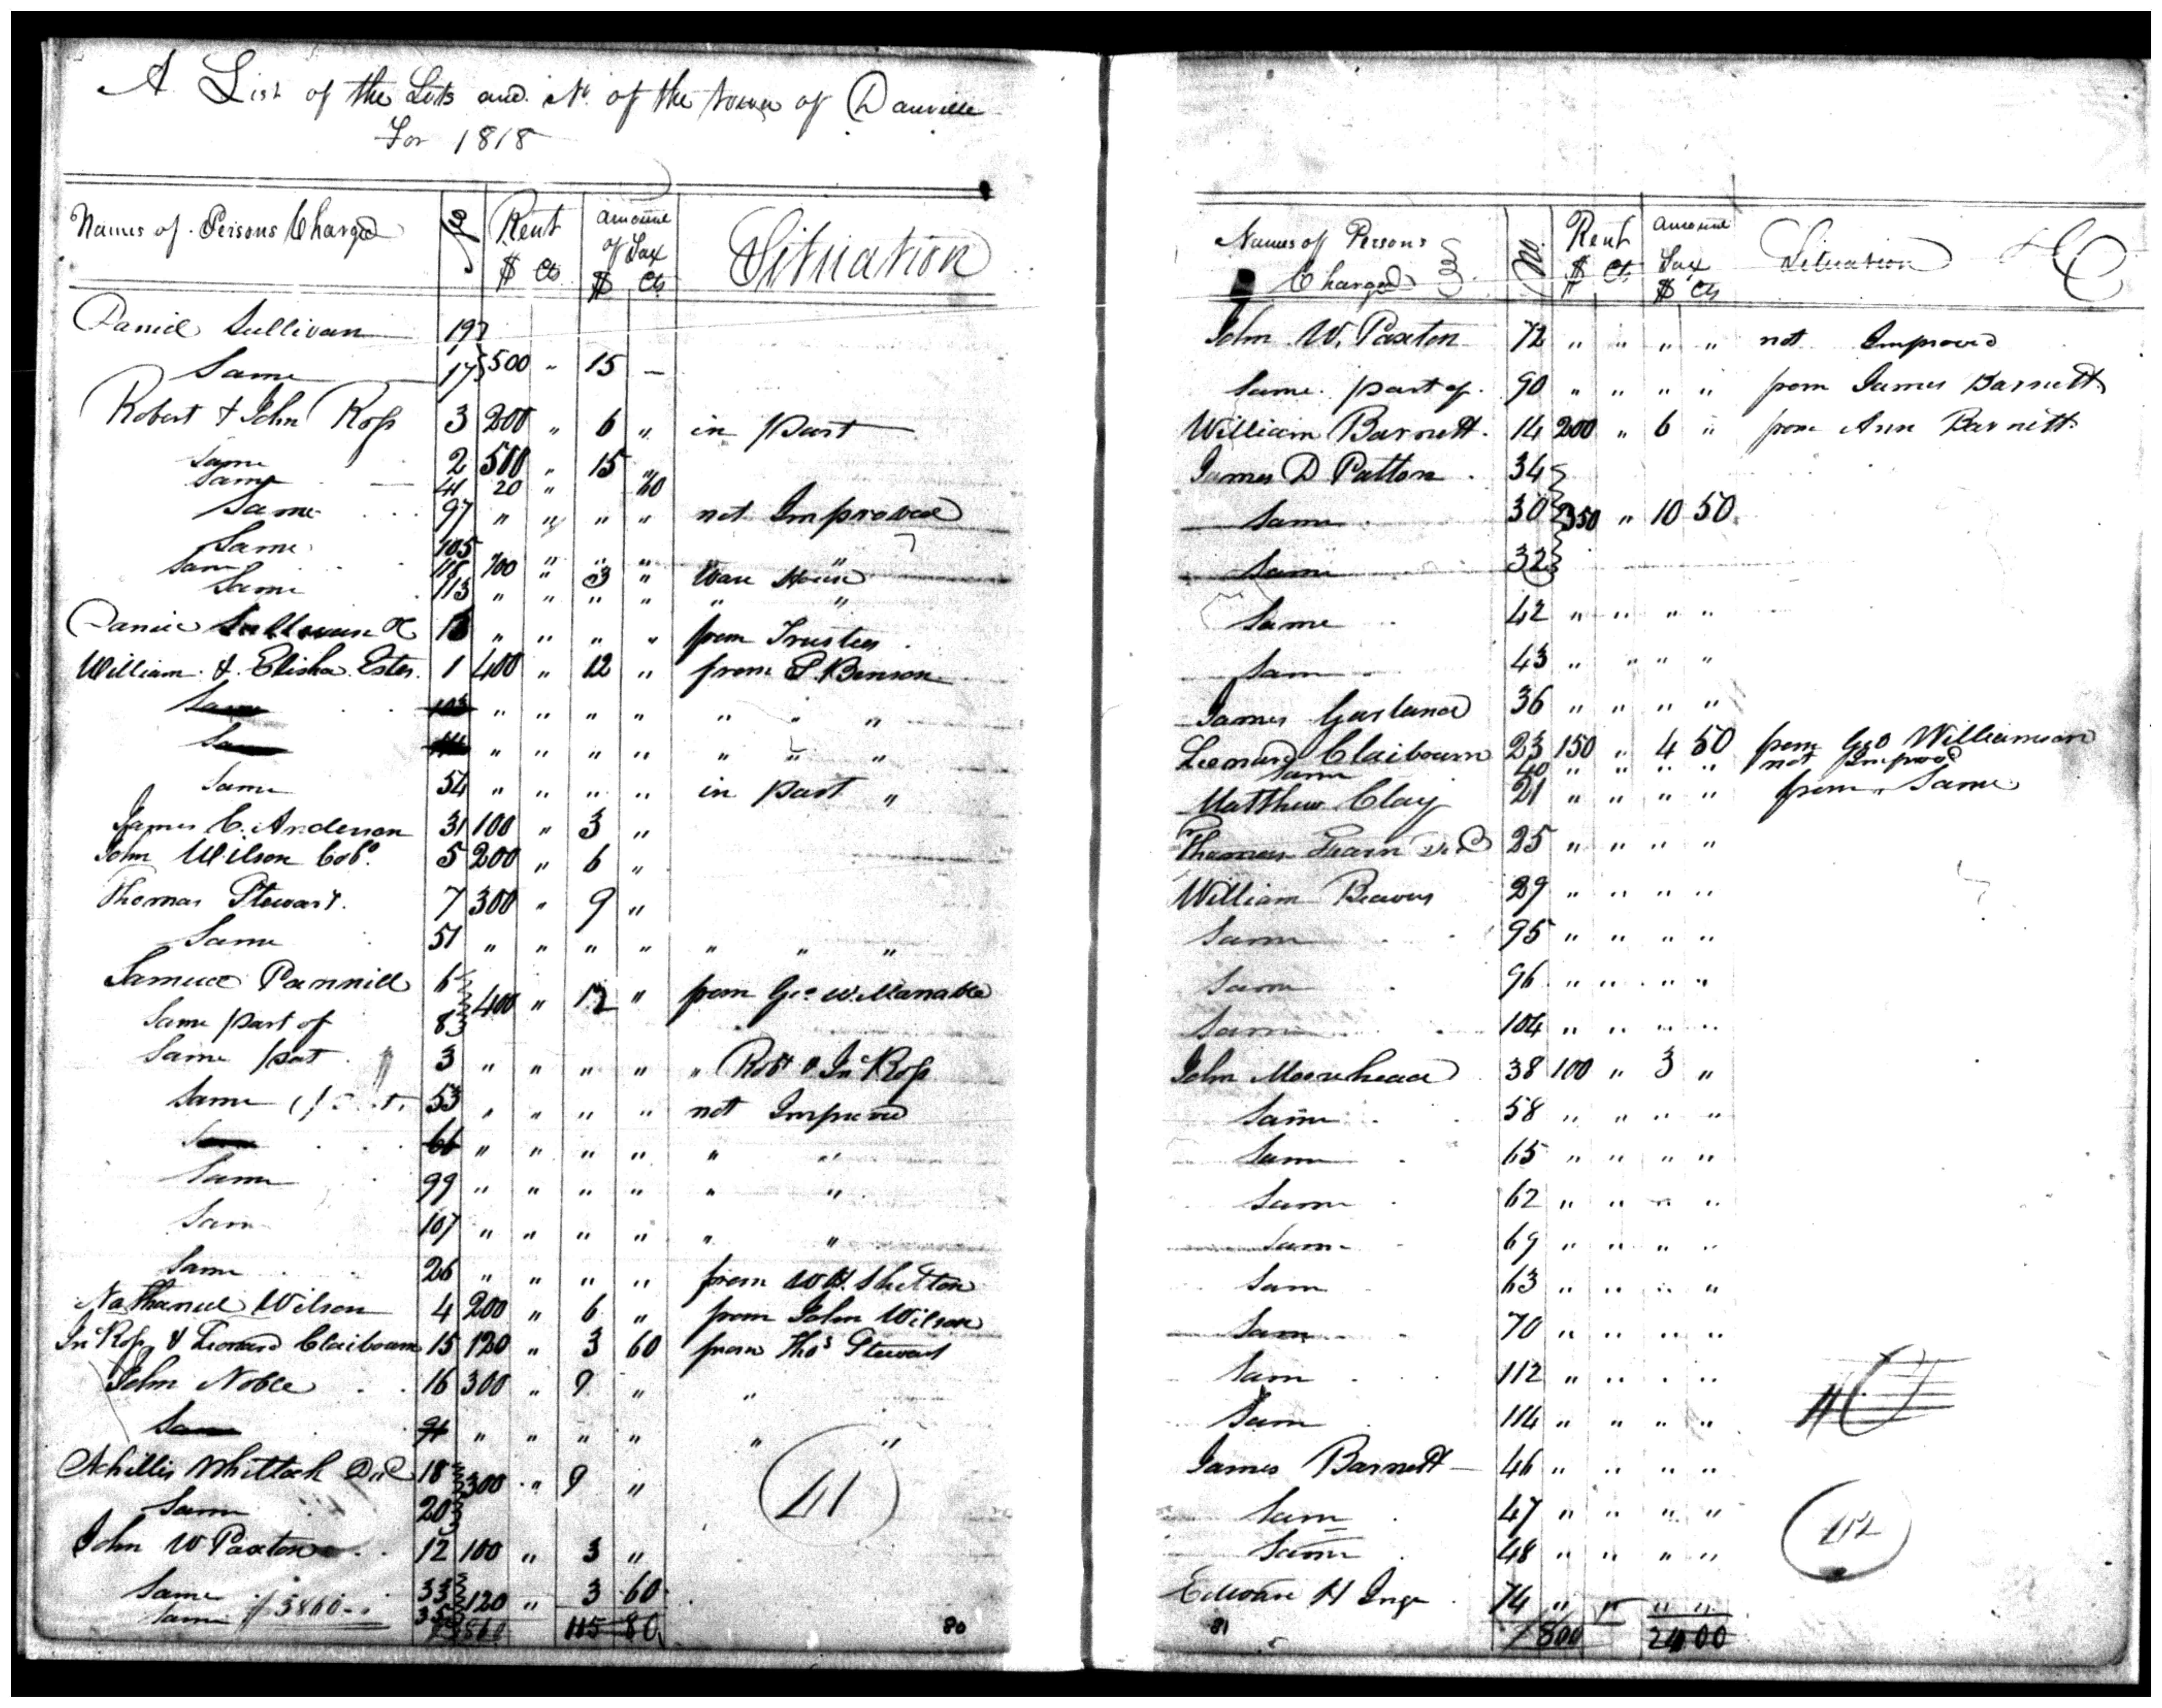 A List of the Lots and No. of the town of Danville
For 1818
Names of Persons Charged No Rent $ Cts amount of Tax $ Cts Situation
Daniel Sullivan 19
Same 17 500 " 15 —
Robert & John Ross 3 200 " 6 " in part
Same 2 500 " 15 "
Same 41 20 " " 60
Same 97 " " " " not Improved
Same 105 " " " " "
Same 115 100 " 3 " Ware House
Same 113 " " " " " "
Daniel Sullivan & 13 " " " " from Trustees
William & Elisha Estes 1 400 " 12 " from S. Benson
Same 103 " " " " " " "
Same " " " " " " "
Same 54 " " " " in part "
James C. Anderson 31 100 " 3 "
John Wilson 5 200 " 6 "
Thomas Stewart 7 300 " 9 "
Same 51 " " " " " " "
Samuel Pannill 6
Same part of 8 400 " 12 " from Geo W.
Same part 3 " " " " " Robt & Jno Ross
Same 53 " " " " not Improved
Same 66 " " " " " "
Same 99 " " " " " "
Same 107 " " " " " "
Same 26 " " " " from W H. Shelton
Nathaniel Wilson 4 200 " 6 " from John Wilson
Jno Ross & Leonard Claibourn 15 120 " 3 60 from Thos Stewart
John Noble 16 300 " 9 " "
Same 94 " " " " " "
Achillis Whitlock Dcd 18 300 " 9 "
Same 20
41
John W Paxton 12 100 " 3 "
Same 33 120 " 3 60
Same 35
3860
3860 115 80
80
Names of Persons Charged No. Rent $ Ct. amount Tax $ Cts Situation
John W. Paxton 72 " " " " not Improved
Same part of 90 " " " " from James Barnett
William Barnett 14 200 " 6 " from Ann Barnett
James D Patton 34
Same 30 350 " 10 50
Same 32
Same 42 " " " "
Sam 43 " " " "
James Garland 36 " " " "
Leonard Claibourn 23 150 " 4 50 from Geo Williamson
Same 40 " " " " not Improved
Matthew Clay 21 " " " " from Same
Thomas Fearn Dcd 25 " " " "
William Beavers 29 " " " "
Same 95 " " " "
Same 96 " " " "
Same 104 " " " "
John Moorehead 38 100 " 3 "
Same 58 " " " "
Same 65 " " " "
Same 62 " " " "
Sam 69 " " " "
Sam 63 " " " "
Sam 70 " " " "
Sam 112 " " " "
Sam 114 " " " "
James Barnett 46 " " " "
Sam 47 " " " "
Same 48 " " " "
42
Edward H Inge 74 " " " "
800 24 00
81